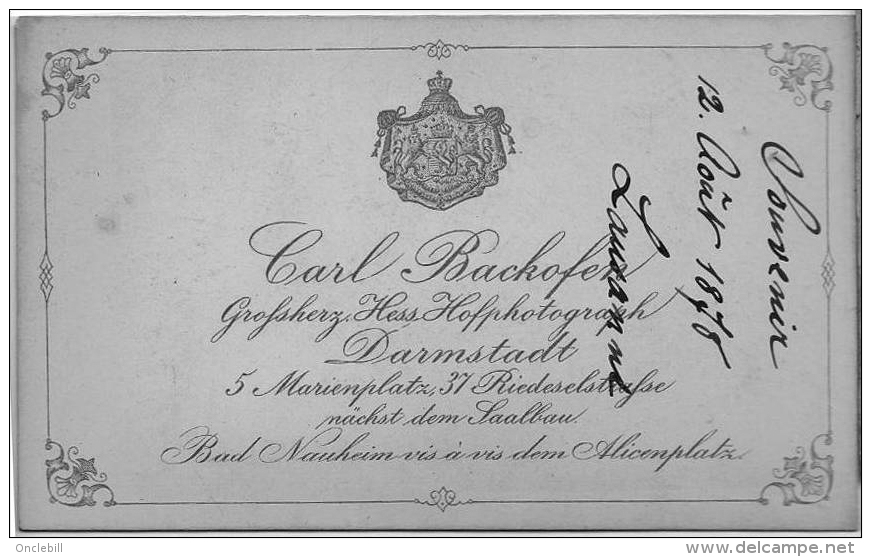 Carl Backofen
Grofsherz. Hess. Hofphotograph
Darmstadt
5 Marienplatz, 37 Riedeselstrafse
nächst dem Saalbau.
Bad Nauheim vis à vis dem Alicenplatz.
Souvenir
12. Août 1878
Lausanne
Onclebill
www.delcampe.net